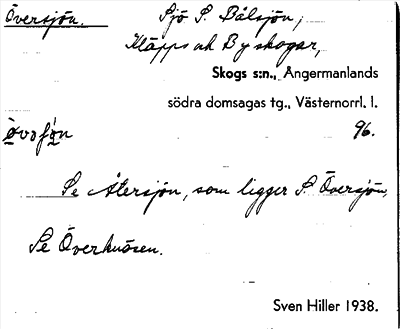 Översjön. Sjö S. Bålsjön,
Kläpps och By skogar,
Skogs s:n., Ångermanlands
södra domsagas tg., Västernorrl. l.
96.
Se Återsjön, som ligger S. Översjön.
Se Överknösen.
Sven Hiller 1938.